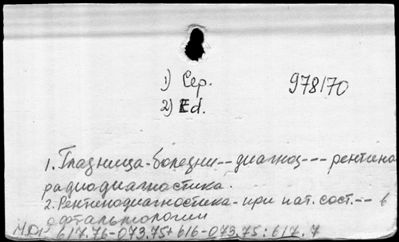 1) Сер.
978170
2) Ed.
1. Глазница-болезни--диагноз---рентгено
радиодиагностика.
2. Рентгенодиагностика-при пат. сост.-- в
офтальмологии
617.76-073.75+616-073.75:617.7